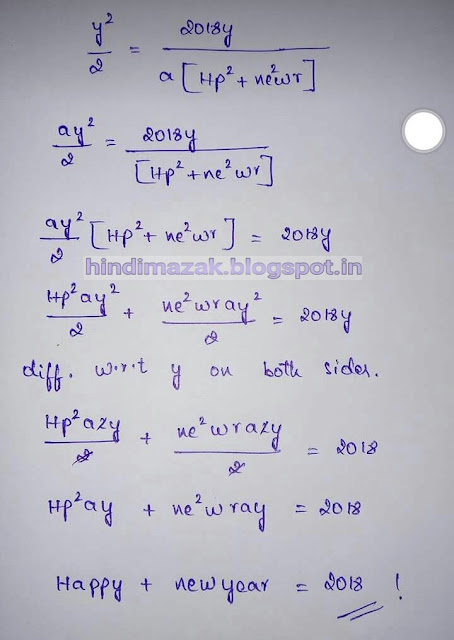 y²/2 = 2018y / a[Hp² + ne²wr]
ay²/2 = 2018y / [Hp² + ne²wr]
ay²/2 [Hp² + ne²wr] = 2018y
hindimazak.blogspot.in
Hp²ay²/2 + ne²wray²/2 = 2018y
diff. w.r.t y on both sides.
Hp²a2y/2 + ne²wra2y/2 = 2018
Hp²ay + ne²wray = 2018
Happy + newyear = 2018 !